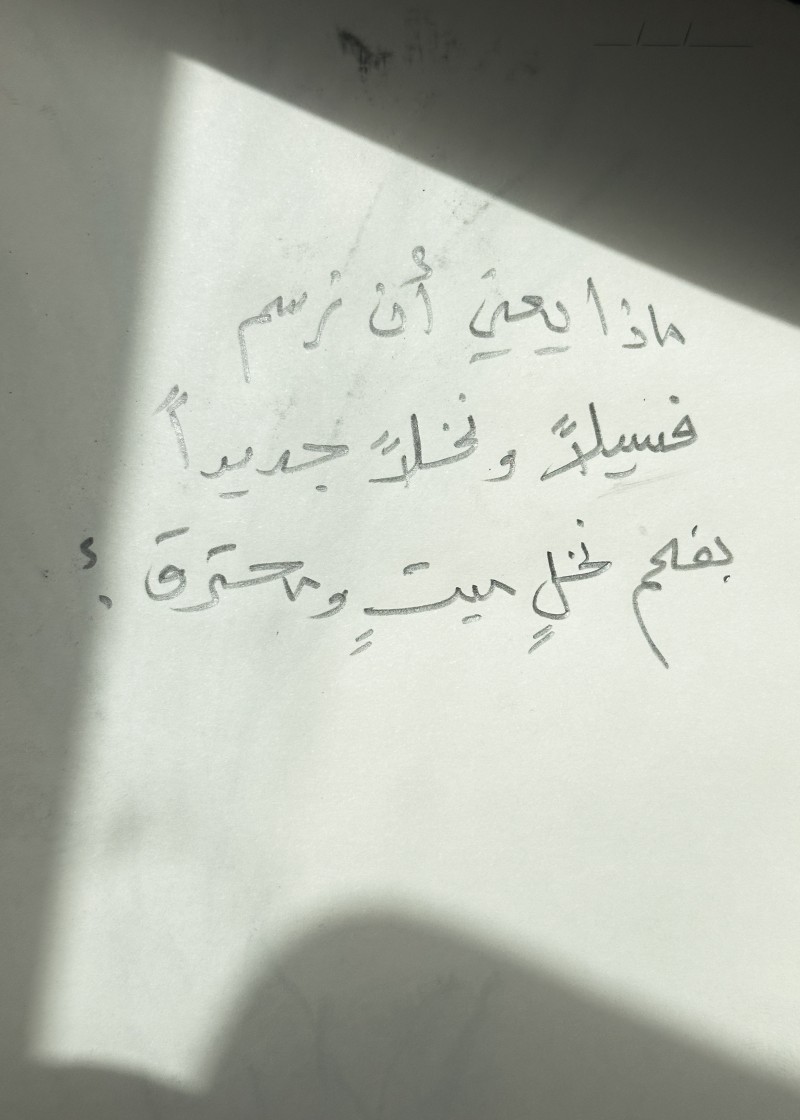 ماذا يعني أن نرسم
فسيلاً ونخلاً جديداً
بفحم نخلٍ ميتٍ ومحترق ؟